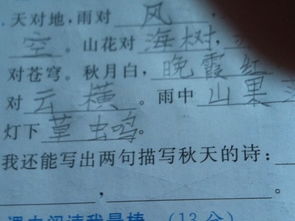 .天对地，雨对 风 ，
空 。山花对 海树 ，
对苍穹。秋月白， 晚霞红
对 云横 。雨中 山果
灯下 草虫鸣 。
我还能写出两句描写秋天的诗：
， 。